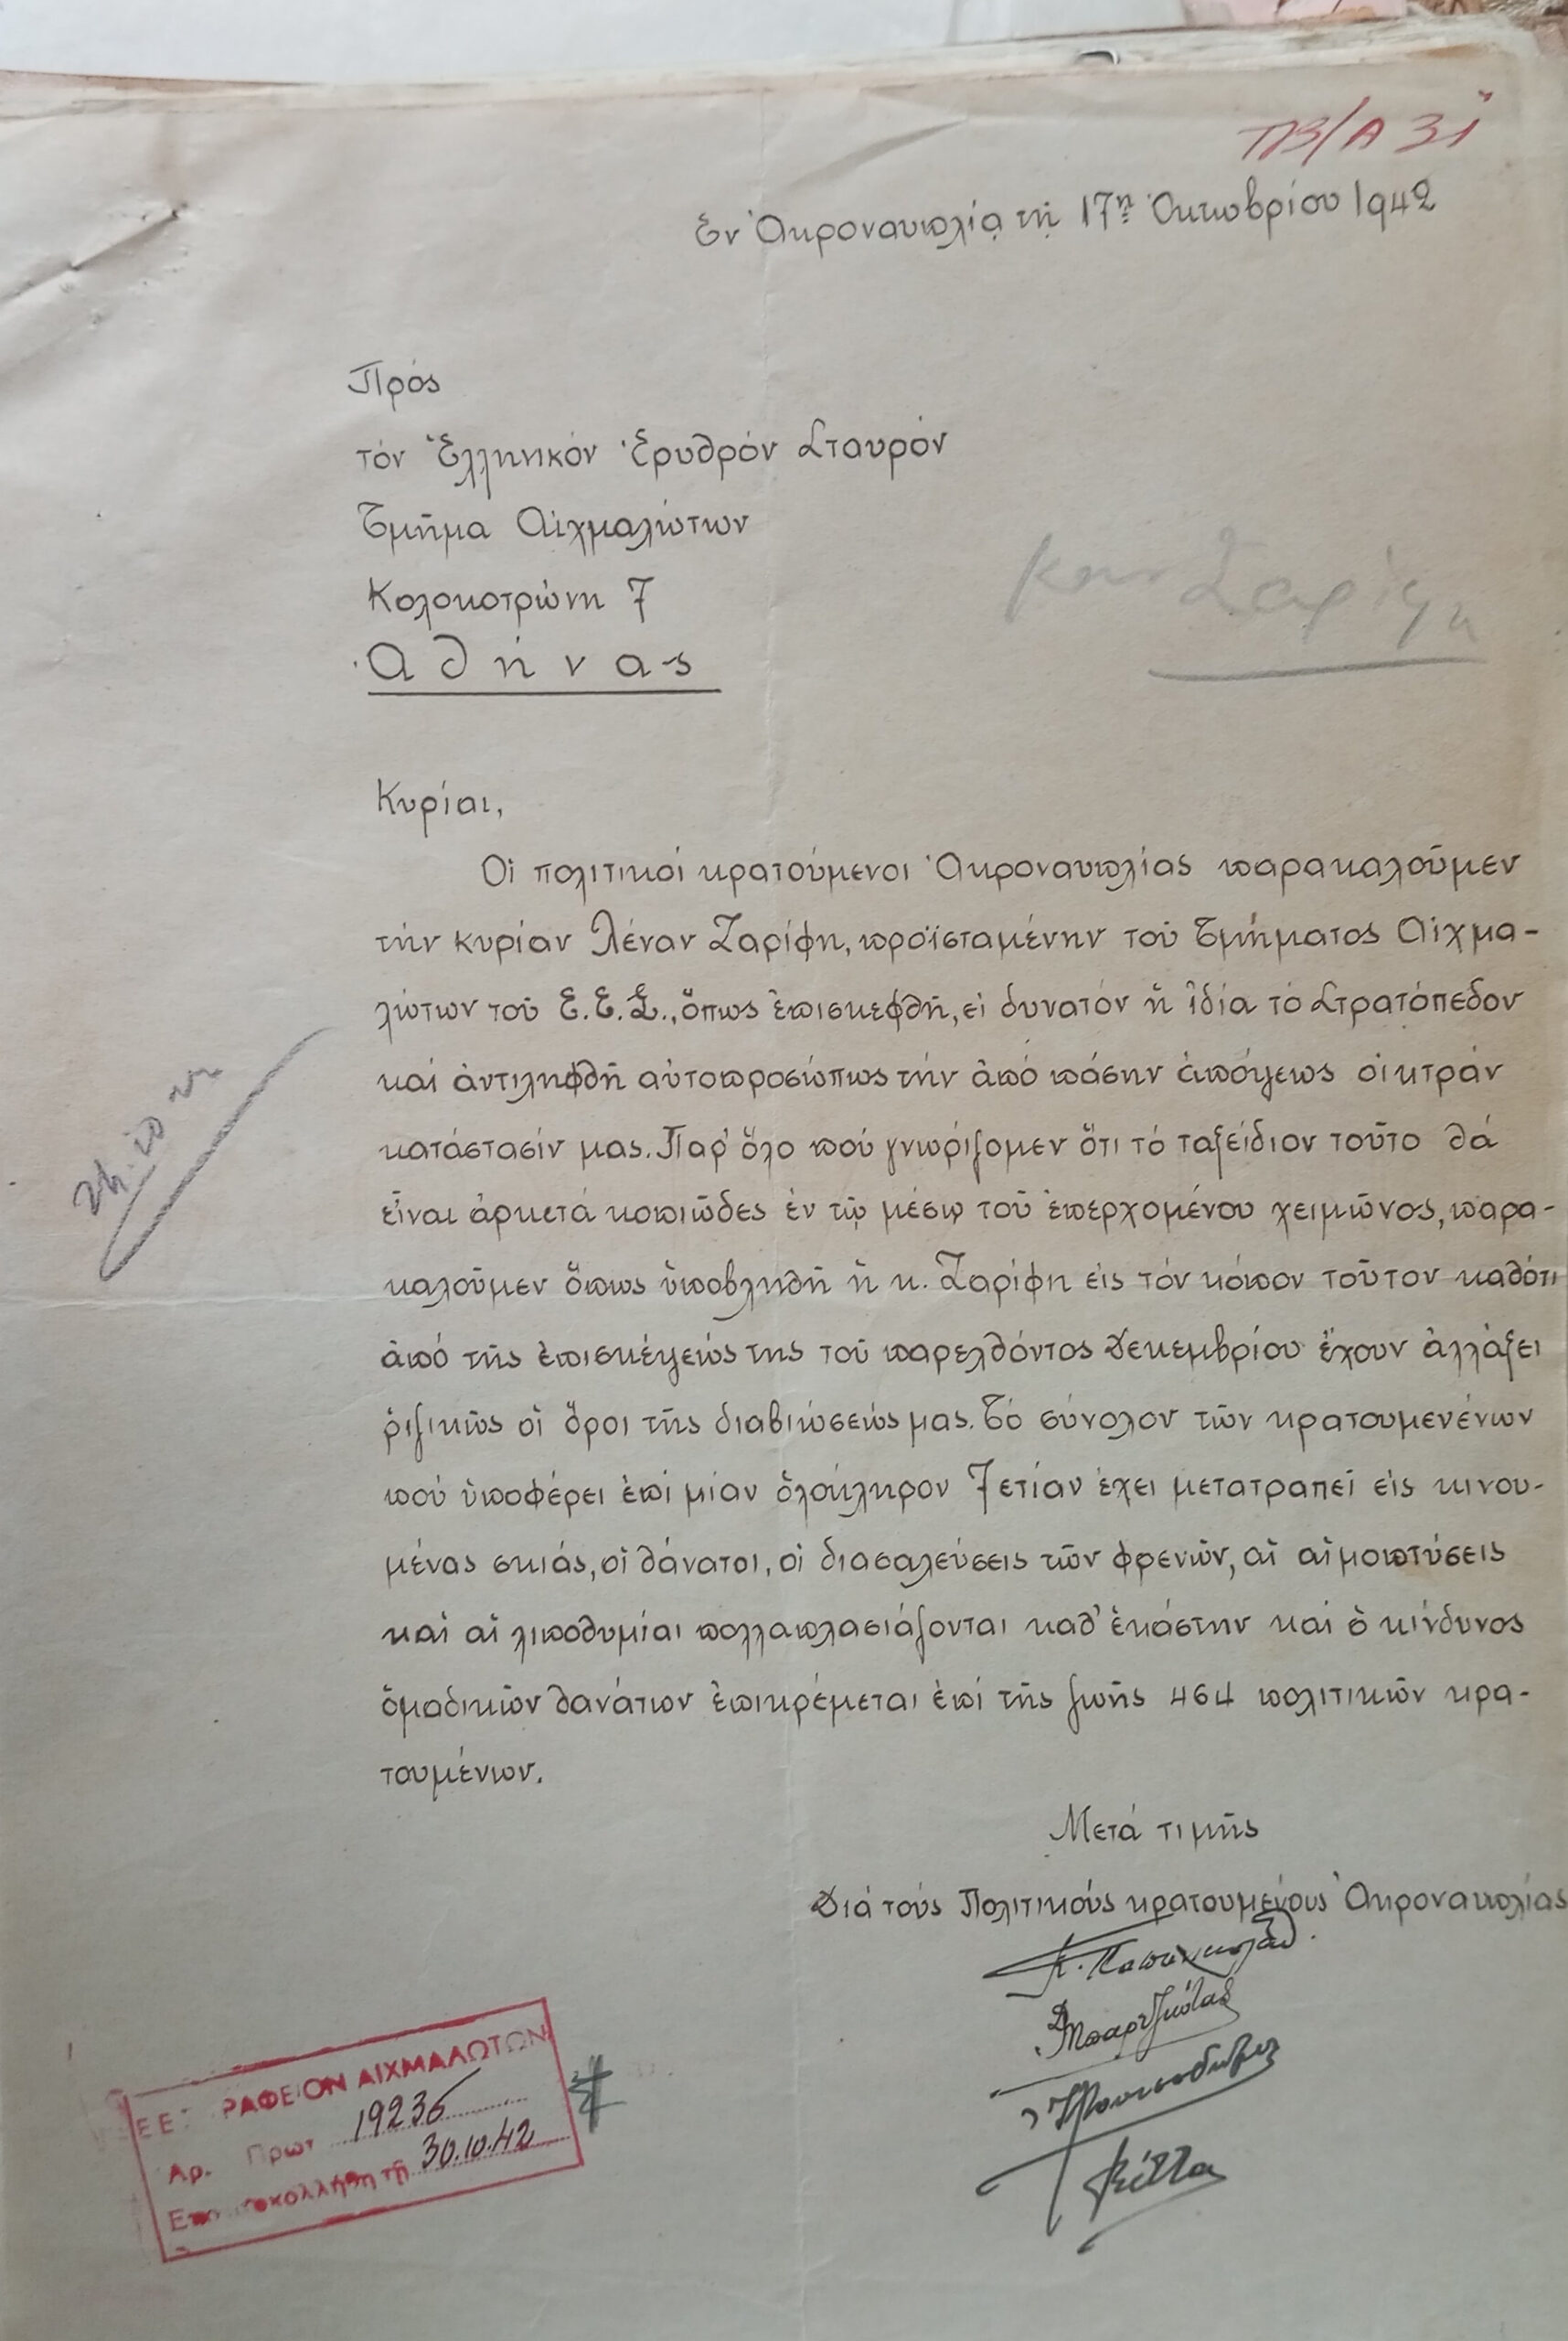 ΠΒ/Α 31
Ἐν Ἀκροναυπλίᾳ τῇ 17ῃ Ὀκτωβρίου 1942
Πρός
τόν Ἑλληνικόν Ἐρυθρόν Σταυρόν
Τμῆμα Αἰχμαλώτων
Κολοκοτρώνη 7
Ἀθήνας
Ζαρίφη
Κυρίαι,
Οἱ πολιτικοί κρατούμενοι Ἀκροναυπλίας παρακαλοῦμεν
τήν κυρίαν Λέναν Ζαρίφη, προϊσταμένην τοῦ Τμήματος Αἰχμα-
λώτων τοῦ Ε.Ε.Σ., ὅπως ἐπισκεφθῆ, εἰ δυνατόν ἡ ἰδία τό Στρατόπεδον
καί ἀντιληφθῆ αὐτοπροσώπως τήν ἀπό πάσην ἀπόψεως οἰκτράν
κατάστασίν μας. Παρ' ὅλο πού γνωρίζομεν ὅτι τό ταξείδιον τοῦτο θά
εἶναι ἀρκετά κοπιῶδες ἐν τῷ μέσῳ τοῦ ἐπερχομένου χειμῶνος, παρα-
καλοῦμεν ὅπως ὑποβληθῆ ἡ κ. Ζαρίφη εἰς τόν κόπον τοῦτον καθότι
ἀπό τῆς ἐπισκέψεώς της τοῦ παρελθόντος Δεκεμβρίου ἔχουν ἀλλάξει
ριζικῶς οἱ ὅροι τῆς διαβιώσεώς μας. Τό σύνολον τῶν κρατουμενένων
πού ὑποφέρει ἐπί μίαν ὁλόκληρον 7ετίαν ἔχει μετατραπεῖ εἰς κινου-
μένας σκιάς, οἱ θάνατοι, οἱ διασαλεύσεις τῶν φρενῶν, αἱ αἱμοπτύσεις
καί αἱ λιποθυμίαι πολλαπλασιάζονται καθ' ἑκάστην καί ὁ κίνδυνος
ὁμαδικῶν θανάτων ἐπικρέμεται ἐπί τῆς ζωῆς 464 πολιτικῶν κρα-
τουμένων.
Μετά τιμῆς
Διά τούς Πολιτικούς κρατουμένους Ἀκροναυπλίας
Κ. Παπανικολάου
Μπαρτζιώτας
ΡΑΦΕΙΟΝ ΑΙΧΜΑΛΩΤΩΝ
Αρ. Πρωτ 19236
τῇ 30.10.42